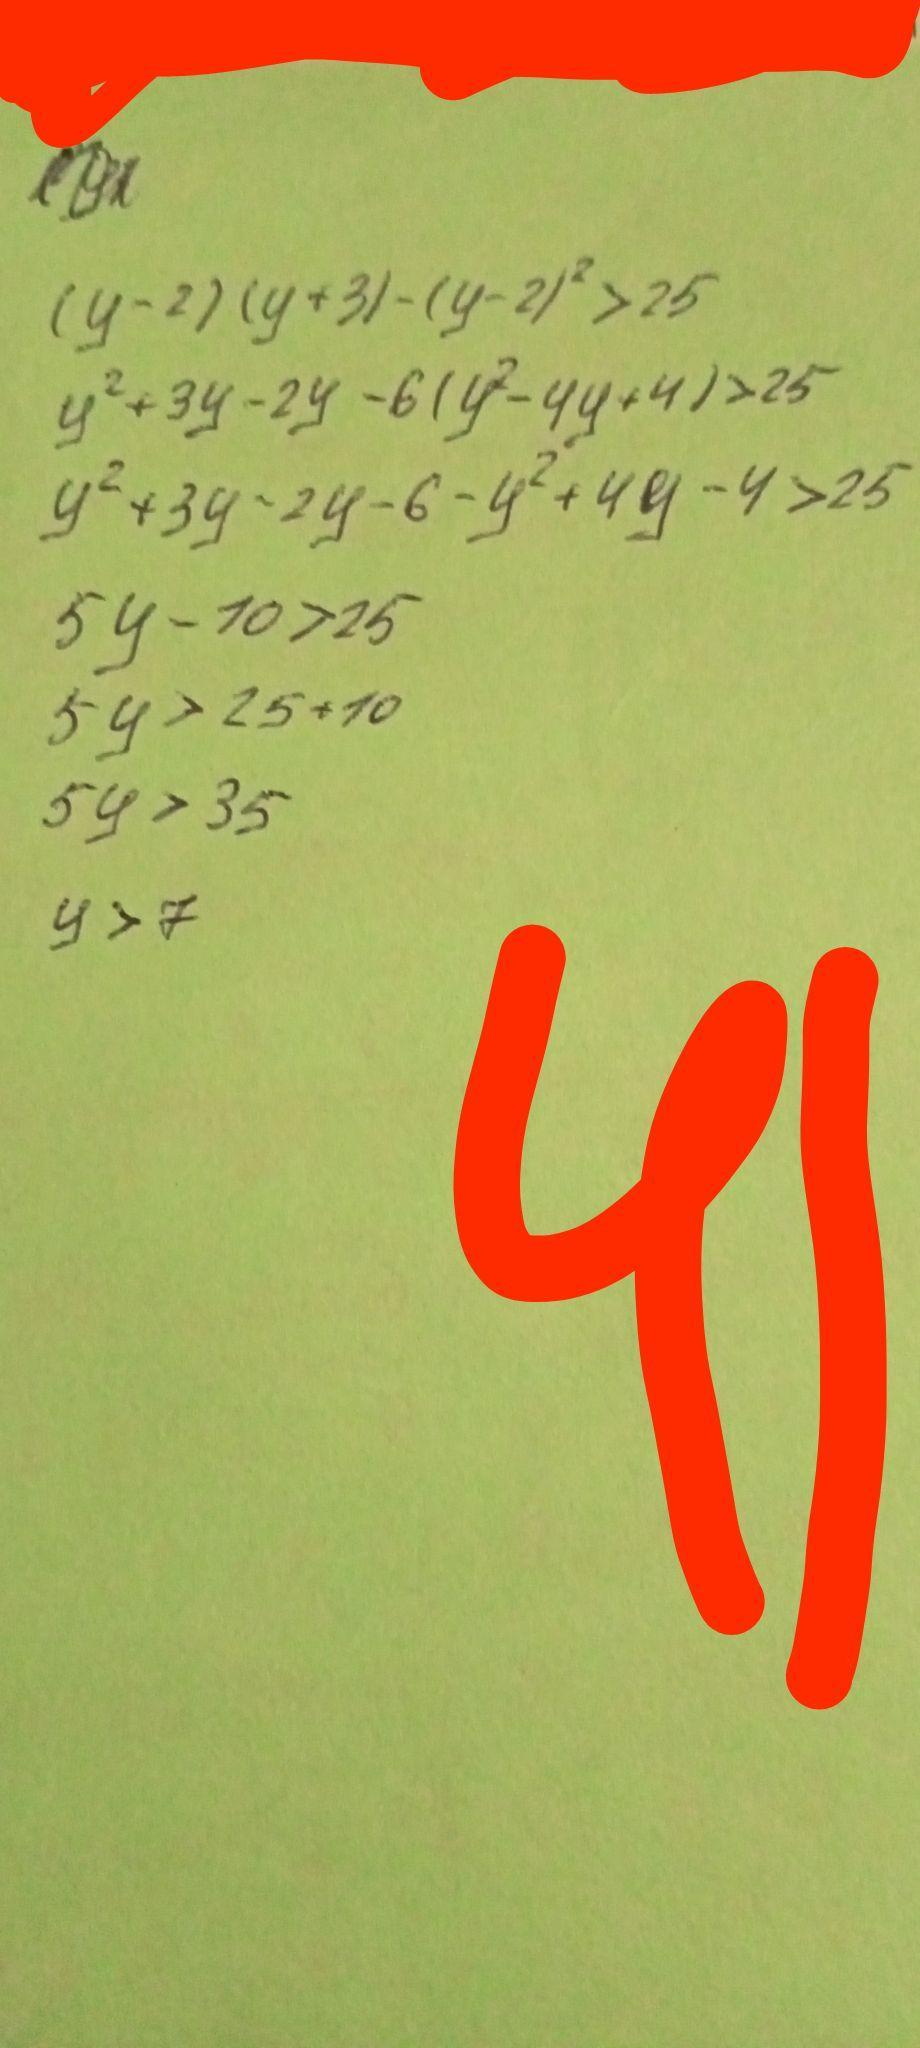 (y-2)(y+3)-(y-2)²>25
y²+3y-2y-6(y²-4y+4)>25
y²+3y-2y-6-y²+4y-4>25
5y-10>25
5y>25+10
5y>35
y>7
41